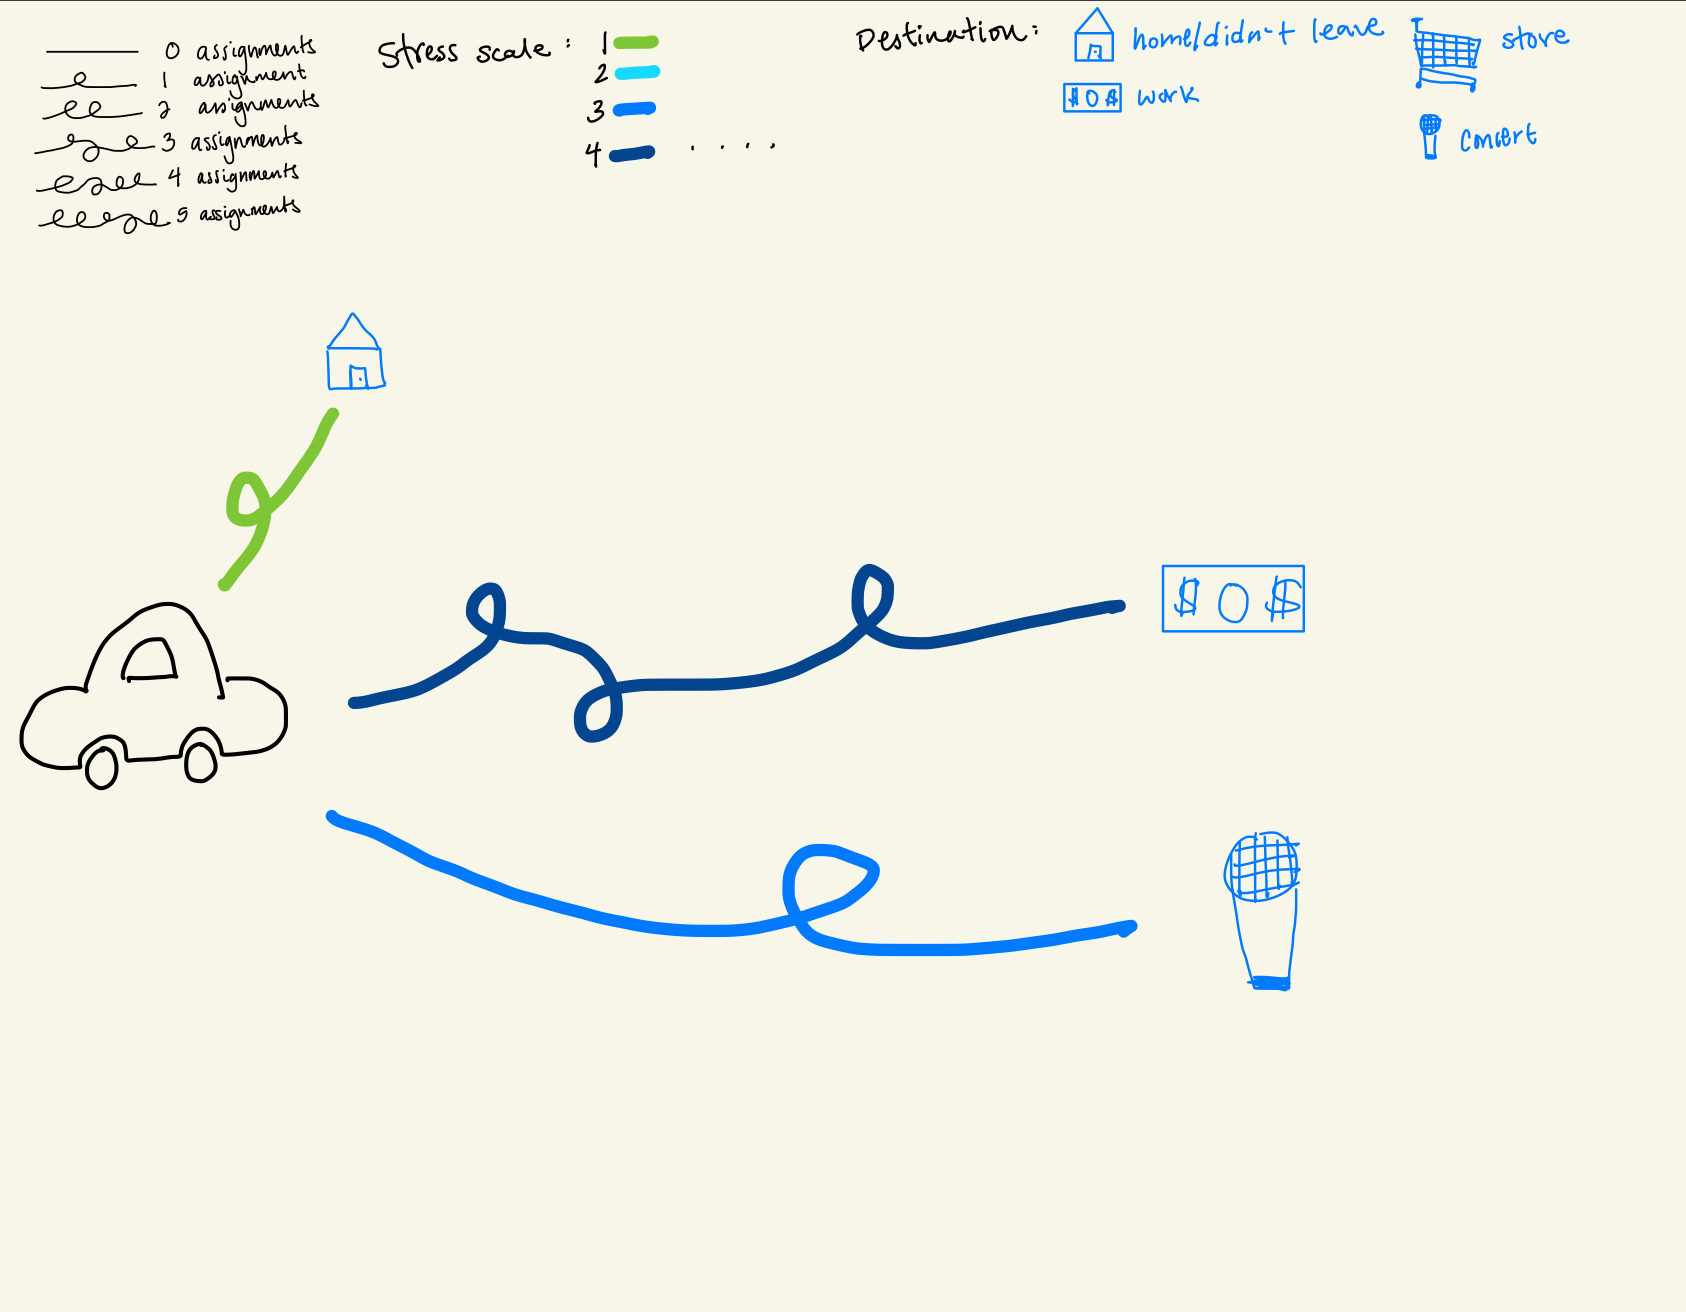 0 assignments
1 assignment
2 assignments
3 assignments
4 assignments
5 assignments
Stress scale :
1
2
3
4 . . . .
Destination:
home/didn't leave
$0$ work
store
concert
$0$